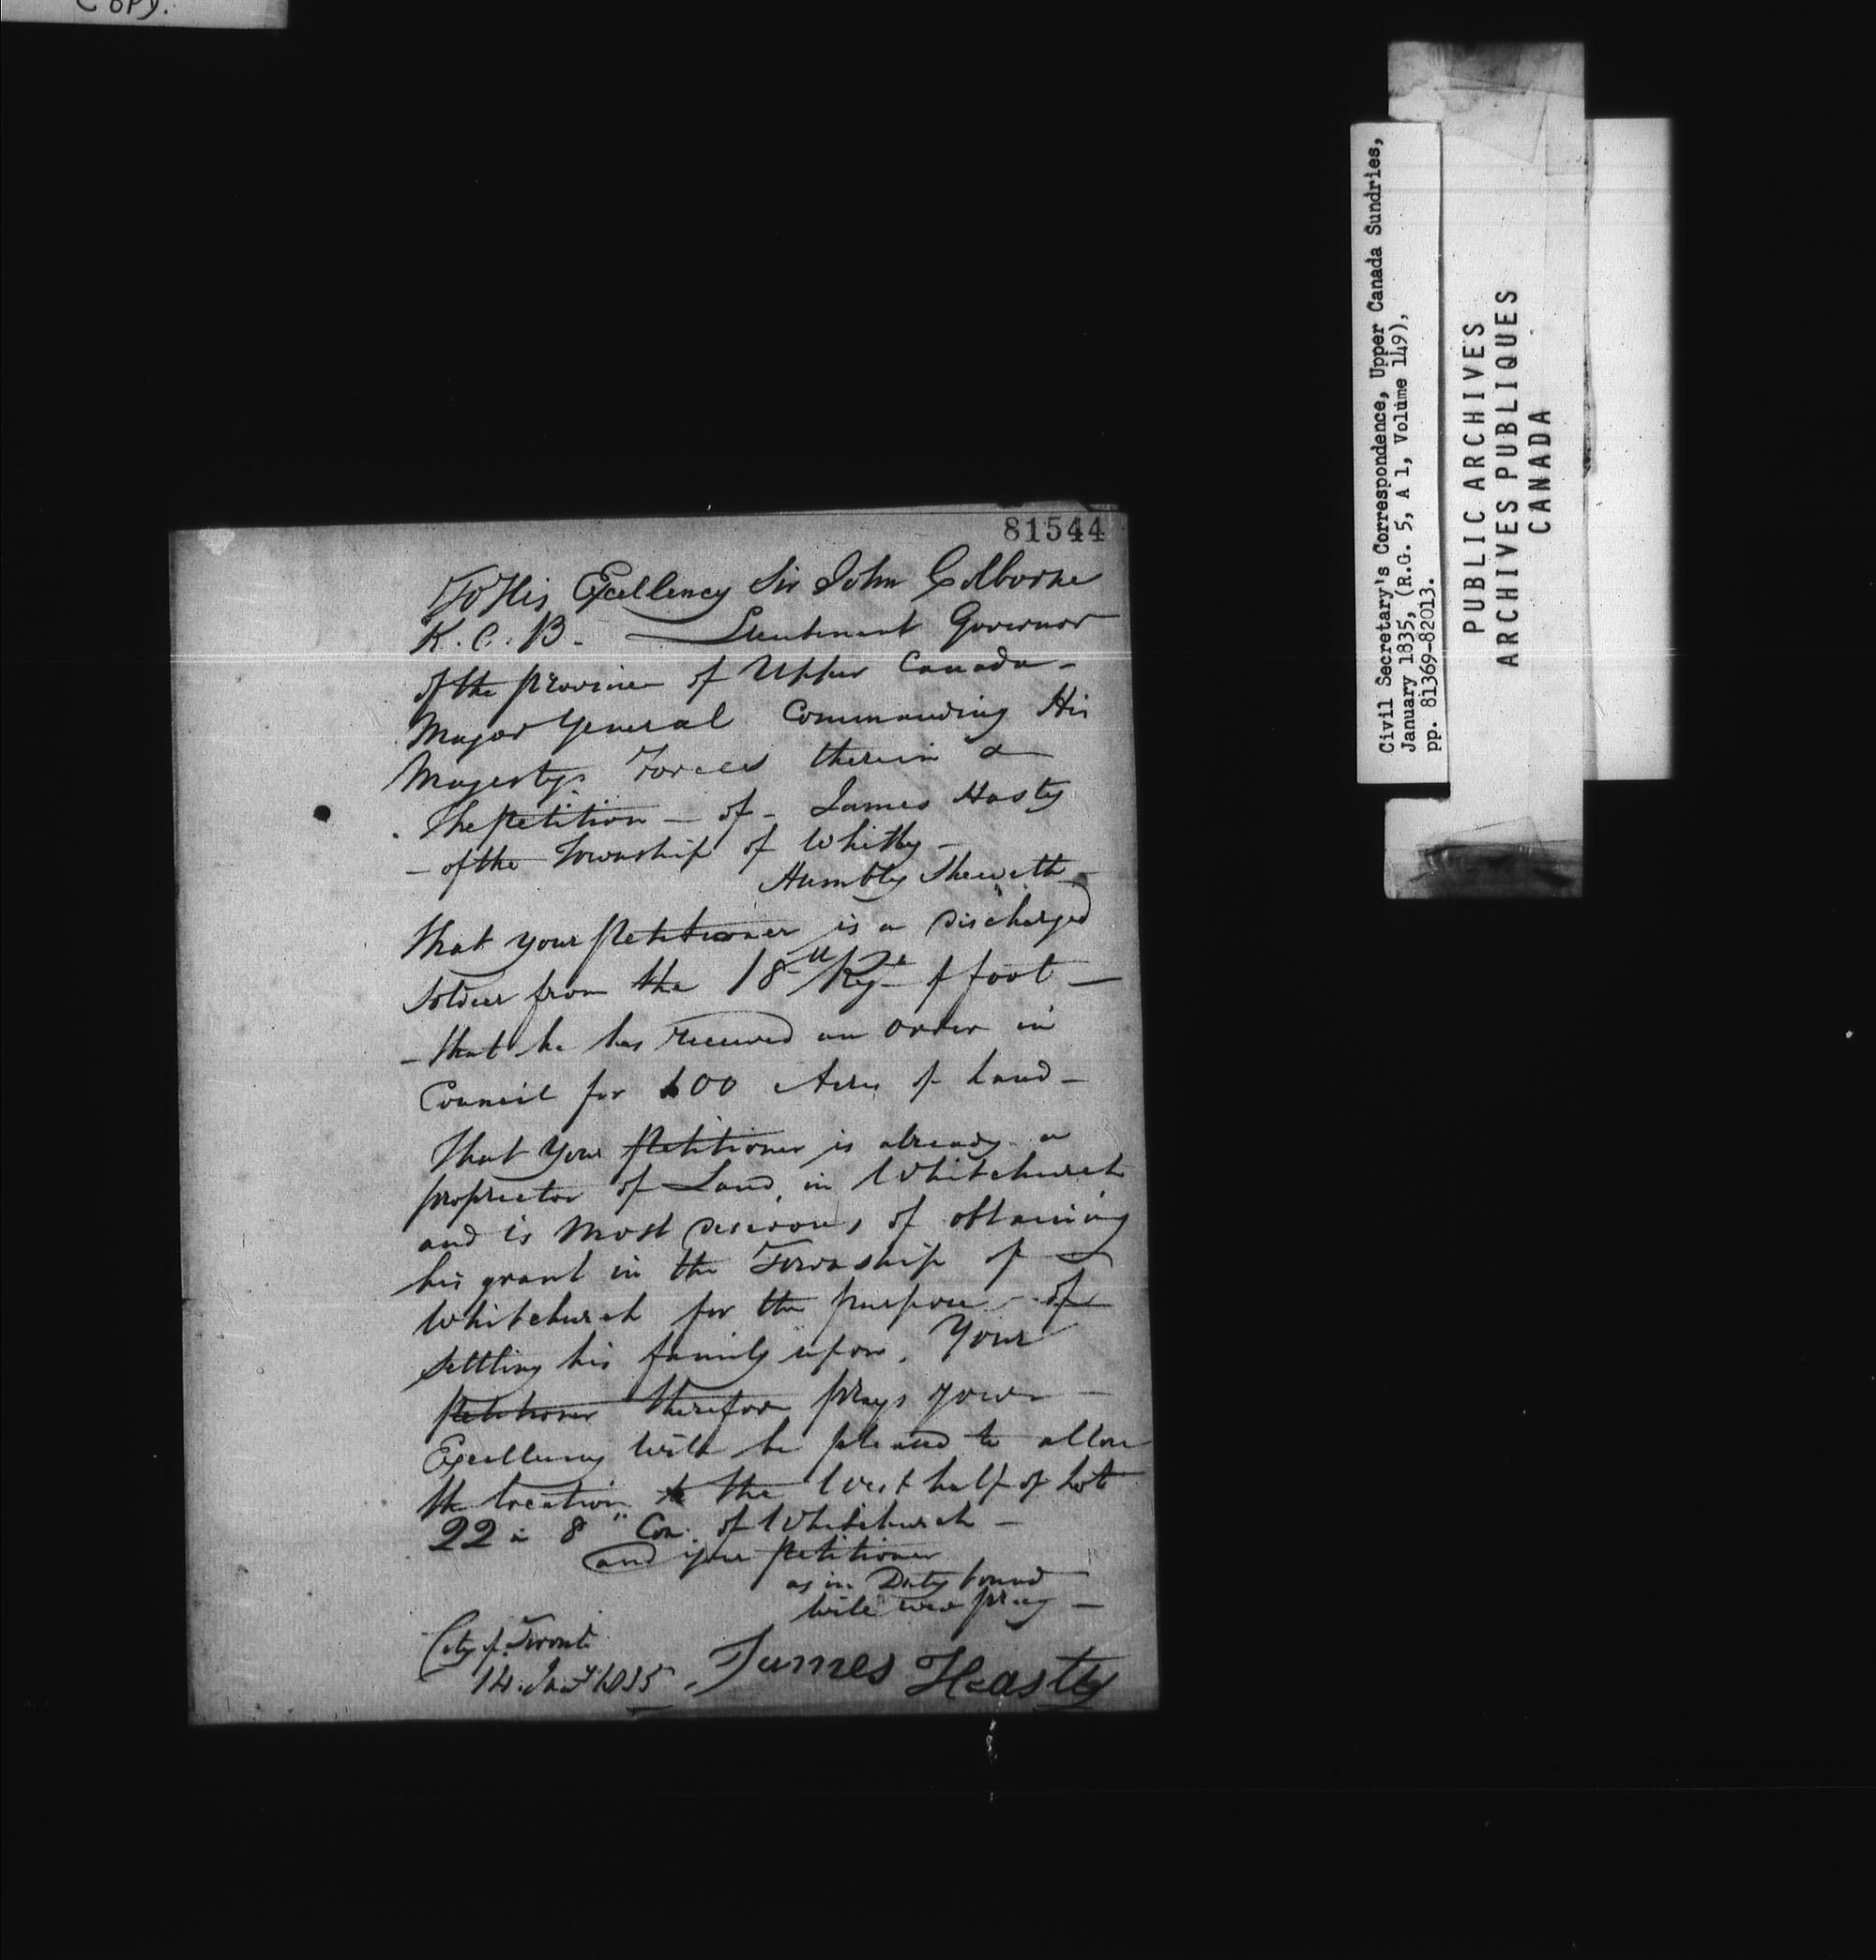 Copy.
81544
To His Excellency Sir John Colborne
K.C.B. — Lieutenant Governor
of the province of Upper Canada -
Major General Commanding His
Majestys Forces therein &
The petition - of - James Hasty
- of the Township of Whitby -
Humbly Sheweth -
That your petitioner is a discharged
Soldier from the 18th Regt of foot -
- that he has received an order in
Council for 100 Acres of Land -
That your petitioner is already a
proprietor of Land, in Whitchurch
and is most desirous of obtaining
his grant in the Township of
Whitchurch for the purpose - of
settling his family upon. Your
petitioner therefore prays your -
Excellency will be pleased to allow
the location to the West half of Lot
22 in 8" Con. of Whitchurch -
and your petitioner
as in Duty bound
will ever pray -
City of Toronto
14 Jany 1835
James Heasty
Civil Secretary's Correspondence, Upper Canada Sundries,
January 1835, (R.G. 5, A 1, Volume 149),
pp. 81369-82013.
PUBLIC ARCHIVES
ARCHIVES PUBLIQUES
CANADA